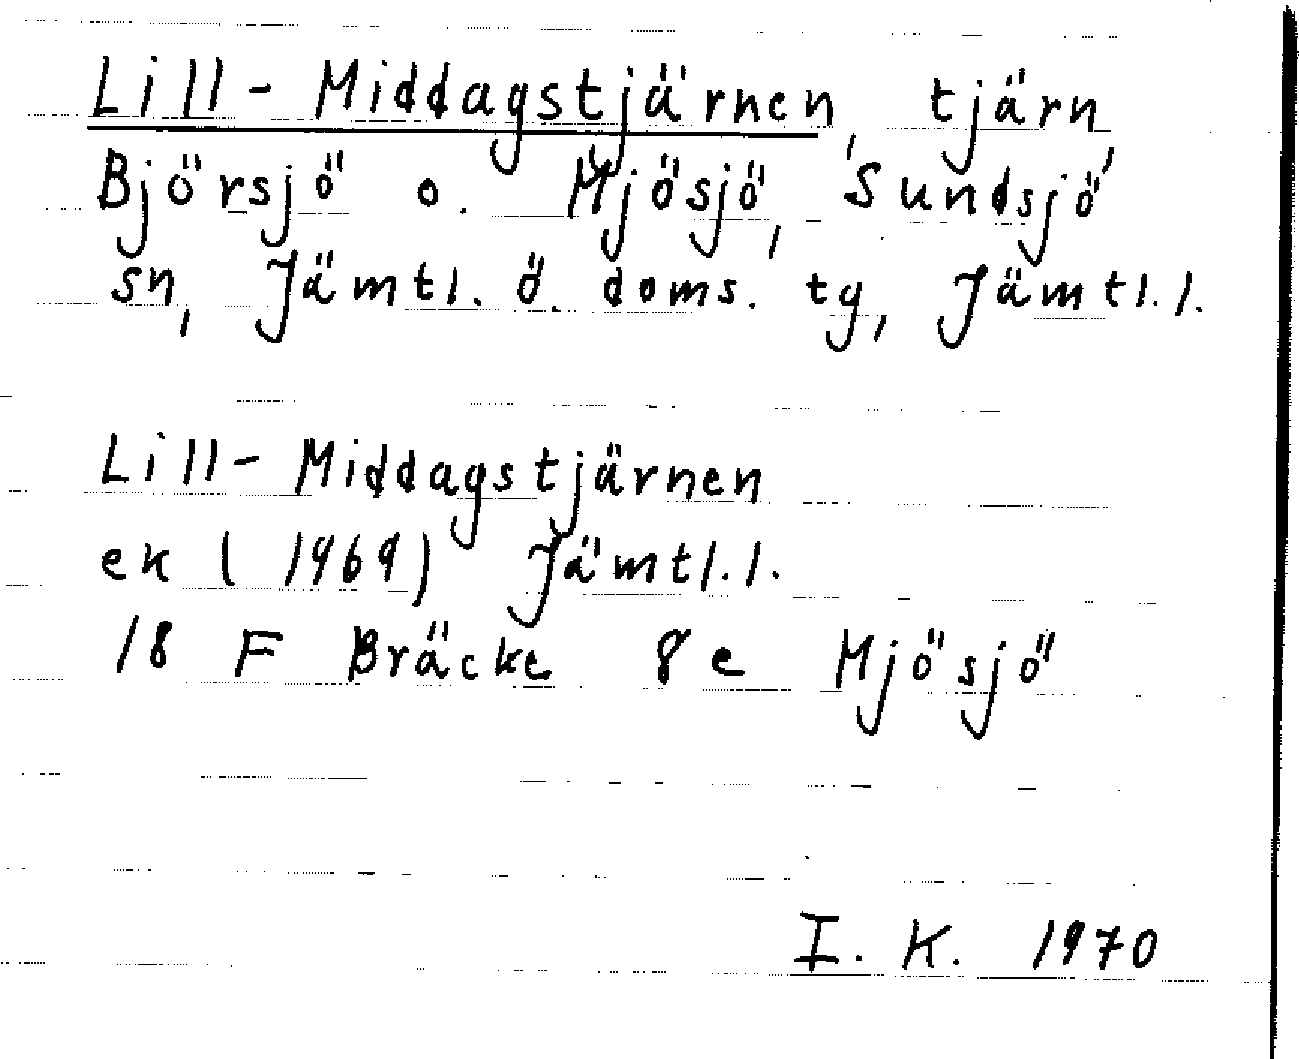 Lill-Middagstjärnen, tjärn,
Björsjö o. Mjösjö, Sundsjö
sn, Jämtl. ö. doms. tg, Jämtl.l.
Lill-Middagstjärnen
ek (1969) Jämtl.l.
18 F Bräcke 8e Mjösjö
I. K. 1970